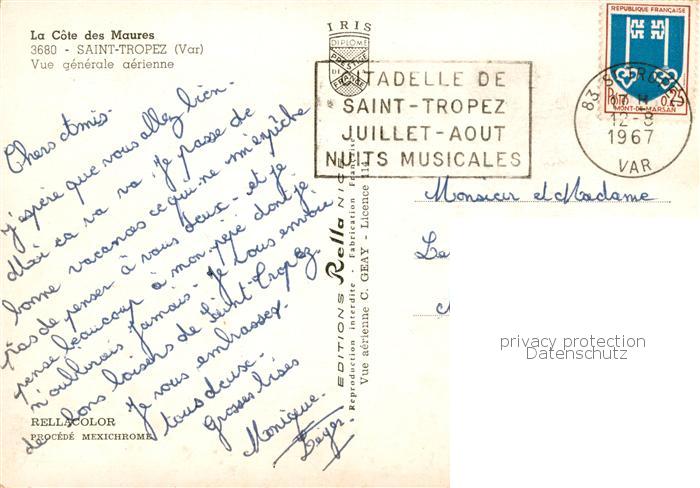 La Côte des Maures
3680 - SAINT-TROPEZ (Var)
Vue générale aérienne
Chers amis
J'espère que vous allez bien.
Moi ça va va. Je passe de
bonne vacances ce qui ne m'empêche
pas de penser à vous deux. et je
pense beaucoup à mon pépé dont je
n'oublierais jamais. Je vous envoie
de bons loisers de Saint-Tropez.
Je vous embrasses
tous deux.
Grosses bises
Monique.
RELLACOLOR
PROCÉDÉ MEXICHROME
IRIS
DIPLOME
PRESTIGE
DE
FRANCE
EDITIONS Rella NICE
Reproduction interdite - Fabrication Française
Vue aérienne C. GEAY - Licence
CITADELLE DE
SAINT-TROPEZ
JUILLET-AOUT
NUITS MUSICALES
REPUBLIQUE FRANÇAISE
0,25
MONT-DE-MARSAN
83 ST TROPEZ
17 H
12-8
1967
VAR
Monsieur et Madame
privacy protection
Datenschutz